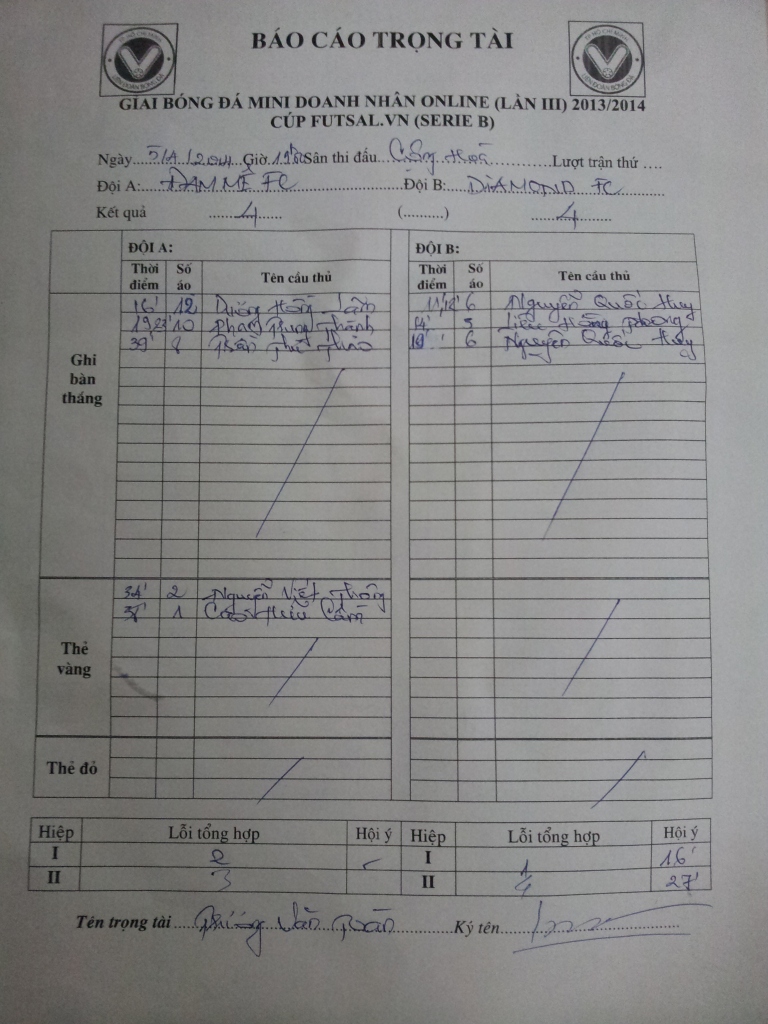 BÁO CÁO TRỌNG TÀI
GIẢI BÓNG ĐÁ MINI DOANH NHÂN ONLINE (LẦN III) 2013/2014
CÚP FUTSAL.VN (SERIE B)
Ngày 5/4/2014 Giờ Sân thi đấu Lượt trận thứ ....
Đội A: ĐAM MÊ FC Đội B: DIAMOND FC
Kết quả 4 (..........) 4
ĐỘI A: ĐỘI B:
Thời điểm Số áo Tên cầu thủ Thời điểm Số áo Tên cầu thủ
Ghi bàn thắng
16' 12 Dương Hồng Lâm 11', 12' 6 Nguyễn Quốc Huy
19, 23' 10 Phan Trung Thành 14' 5 Liêu Hồng Phong
39' 8 Trần Thu Thảo 19' 6 Nguyễn Quốc Huy
Thẻ vàng
34' 2 Nguyễn Viết Thông
1 Cao Hữu Cầm
Thẻ đỏ
Hiệp Lỗi tổng hợp Hội ý Hiệp Lỗi tổng hợp Hội ý
I 2 I 1 16'
II 3 II 4 27'
Tên trọng tài Phùng Văn Toàn Ký tên